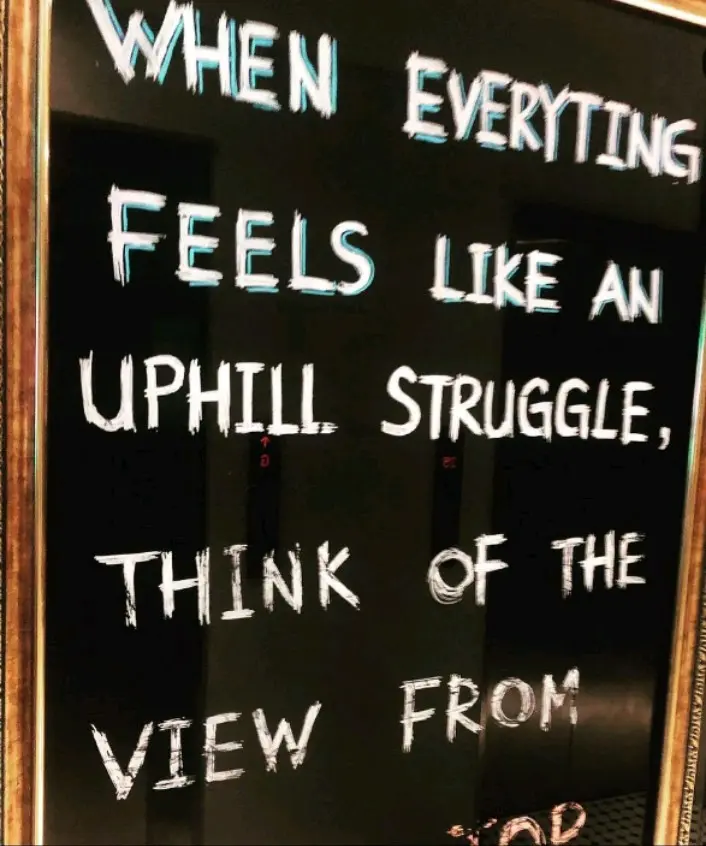 WHEN EVERYTING
FEELS LIKE AN
UPHILL STRUGGLE,
THINK OF THE
VIEW FROM
TOP